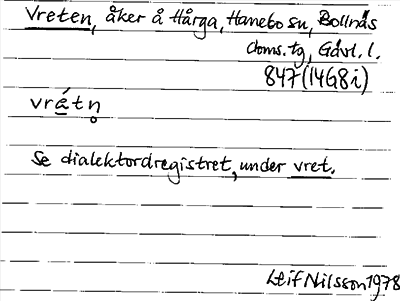 Vreten, åker å Hårga, Hanebo sn, Bollnäs
doms.tg, Gävl. l.
847 (14G8i)
vrátn̥
Se dialektordregistret, under vret.
Leif Nilsson 1978